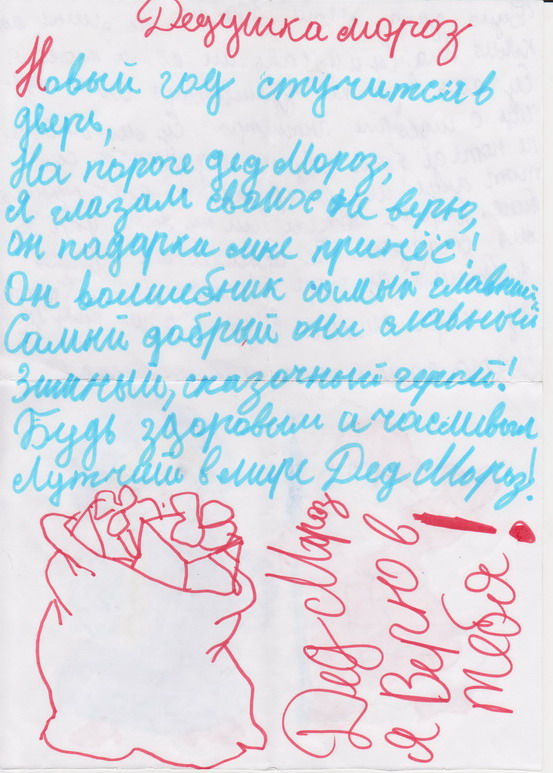 Дедушка мороз
Новый год стучится в
дверь,
На пороге дед Мороз,
Я глазам своих не верю,
Он падарки мне принёс!
Он волшебник самый главный,
Самый добрый они славный
Зимный, сказочный герой!
Будь здоровым и часливым
Лутчий в мире Дед Мороз!
Дед Мороз
я Верю в
тебя!